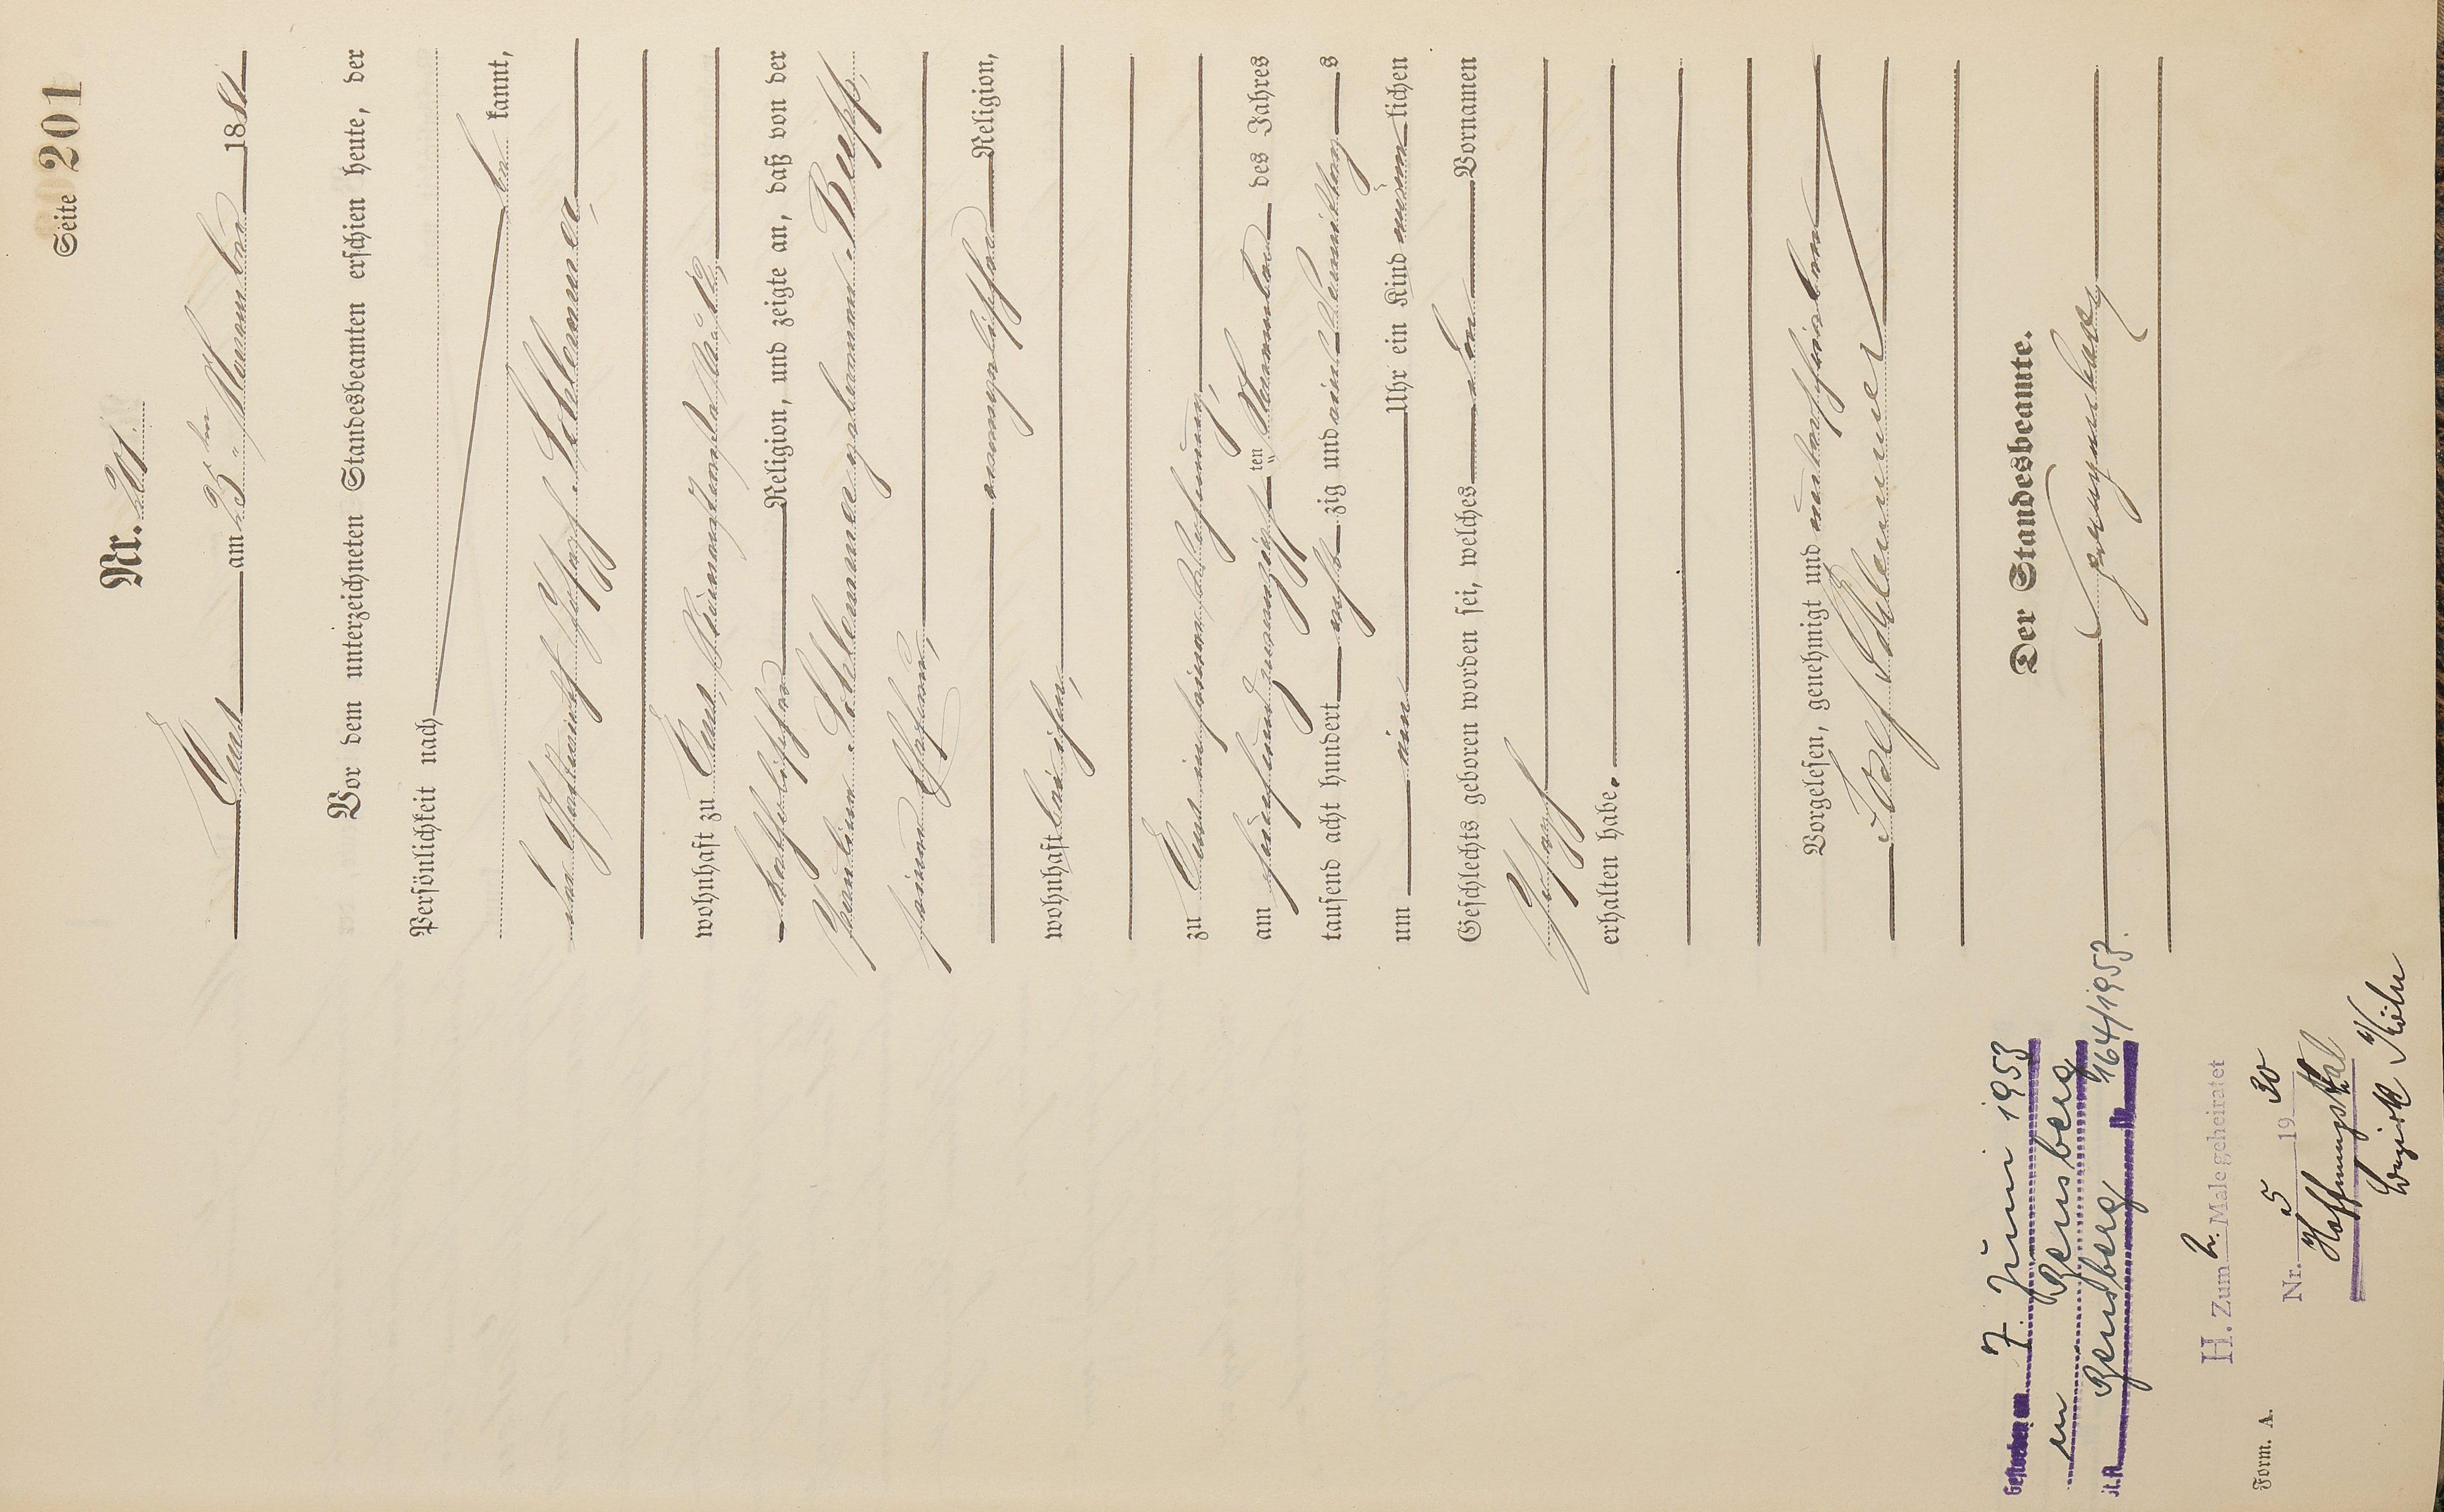 Seite 201
Nr. 201.
Ems am 25ten November 1881
Vor dem unterzeichneten Standesbeamten erschien heute, der
Persönlichkeit nach
be kannt,
der Joseph Schlemmer,
wohnhaft zu Ems,
katholischer Religion, und zeigte an, daß von der
Schlemmer geborenen Bupp,
seiner Ehefrau,
evangelischer Religion,
wohnhaft bei ihm,
zu Ems in seiner Behausung,
am fünfundzwanzigsten November des Jahres
tausend acht hundert achtzig und eins Vormittags
um ein Uhr ein Kind männlichen
Geschlechts geboren worden sei, welches den Vornamen
Joseph
erhalten habe.
Vorgelesen, genehmigt und unterschrieben
Josef Schlemmer
Der Standesbeamte.
Gestorben am 7. Juni 1953
in Bensberg
St.A. Bensberg 164/1953.
H. Zum 2. Male geheiratet
Nr. 5 1930
Hoffnungsthal
Bezirk Köln
Form. A.